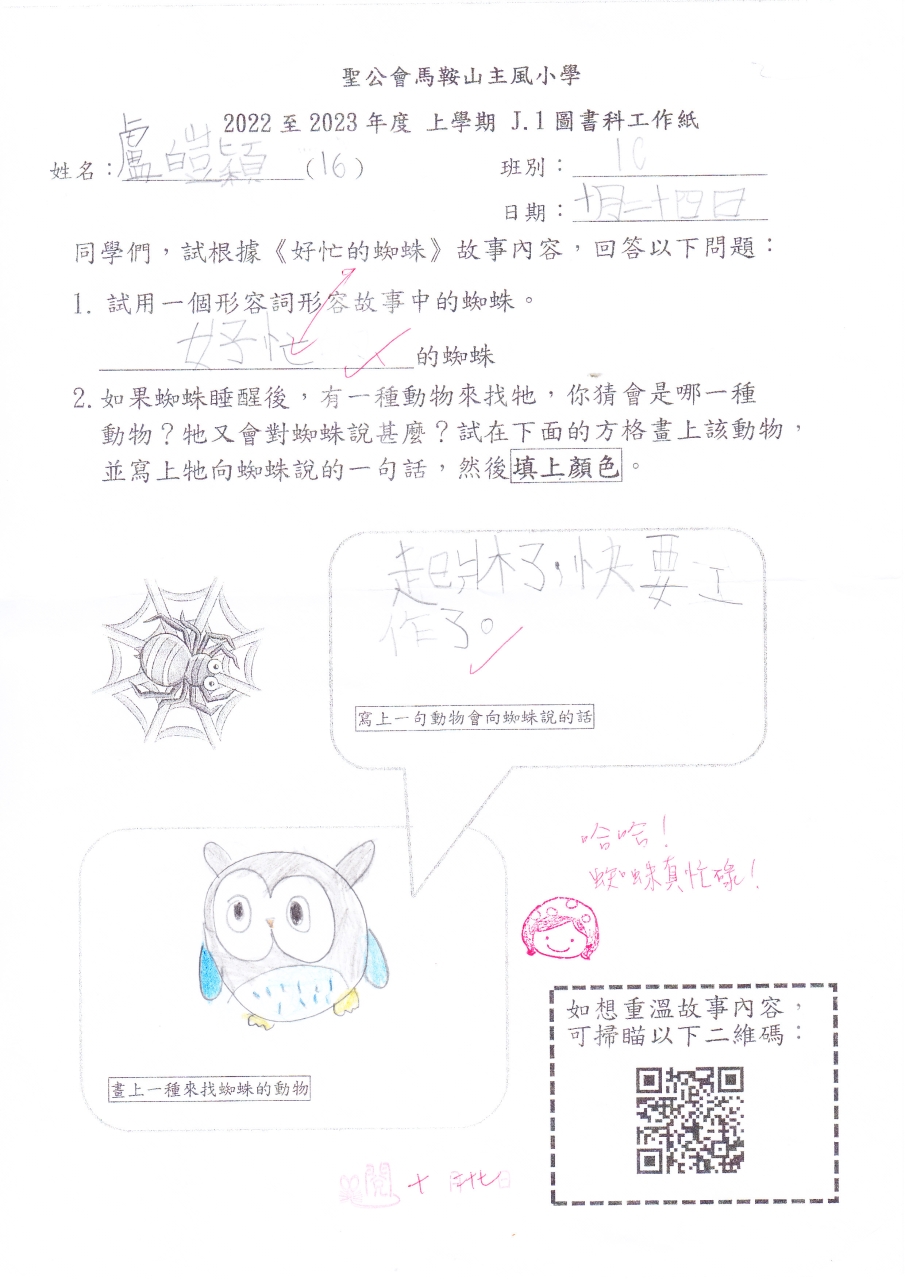 聖公會馬鞍山主風小學
2022 至 2023 年度 上學期 J.1 圖書科工作紙
姓名：盧皚穎(16)
班別：1C
日期：十月二十四日
同學們，試根據《好忙的蜘蛛》故事內容，回答以下問題：
1. 試用一個形容詞形容故事中的蜘蛛。
好忙 的蜘蛛
2. 如果蜘蛛睡醒後，有一種動物來找牠，你猜會是哪一種
動物？牠又會對蜘蛛說甚麼？試在下面的方格畫上該動物，
並寫上牠向蜘蛛說的一句話，然後填上顏色。
起牀了，快要工
作了。
寫上一句動物會向蜘蛛說的話
哈哈！
蜘蛛真忙碌！
畫上一種來找蜘蛛的動物
如想重溫故事內容，
可掃瞄以下二維碼：
閱 十月廿七日